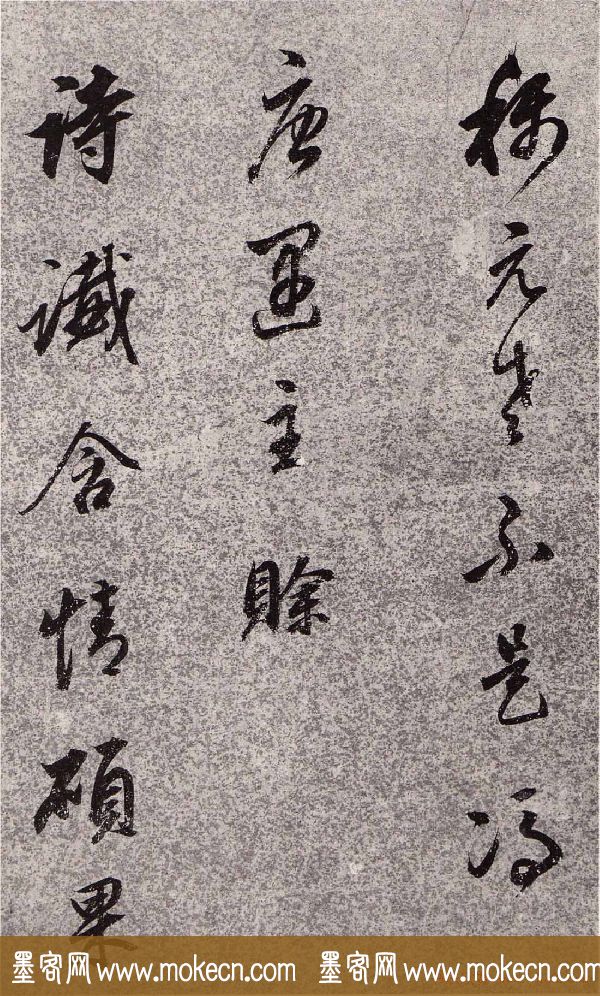 稱元老不是馮
唐遇主賒
詩讖含情碩果
墨客网 www.mokecn.com 墨客网 www.mokecn.com